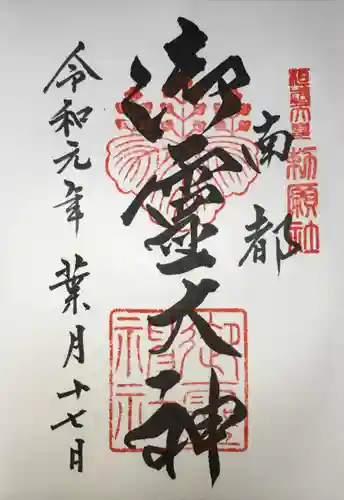 南都
御霊大神
令和元年 葉月十七日
御霊神社
勅願社